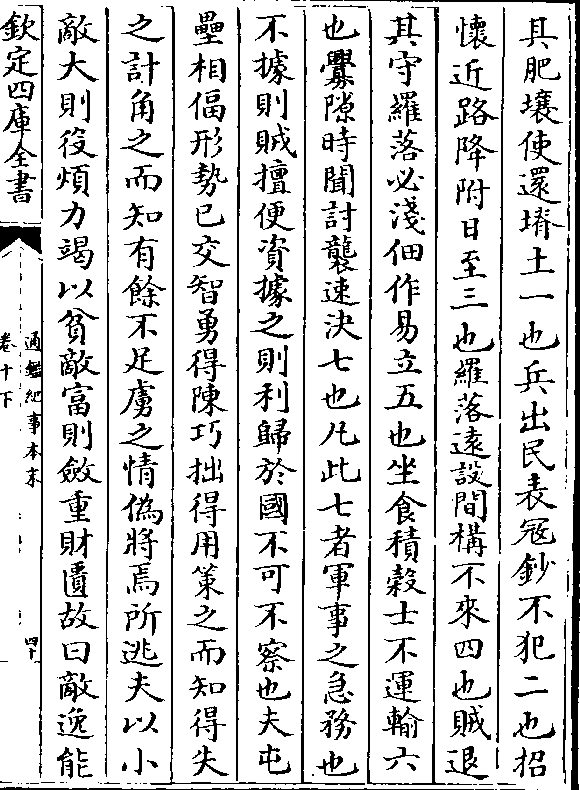 其肥壤使還塉土一也兵出民表冦鈔不犯二也招
懷近路降附日至三也羅落遠設間構不來四也賊退
其守羅落必淺佃作易立五也坐食積穀士不運輸六
也釁隙時聞討襲速決七也凡此七者軍事之急務也
不據則賊擅便資據之則利歸於國不可不察也夫屯
壘相偪形勢已交智勇得陳巧拙得用策之而知得失
之計角之而知有餘不足虜之情偽將焉所逃夫以小
敵大則役煩力竭以貧敵富則斂重財匱故曰敵逸能
欽定四庫全書
通鑑紀事本末
卷十下
四十